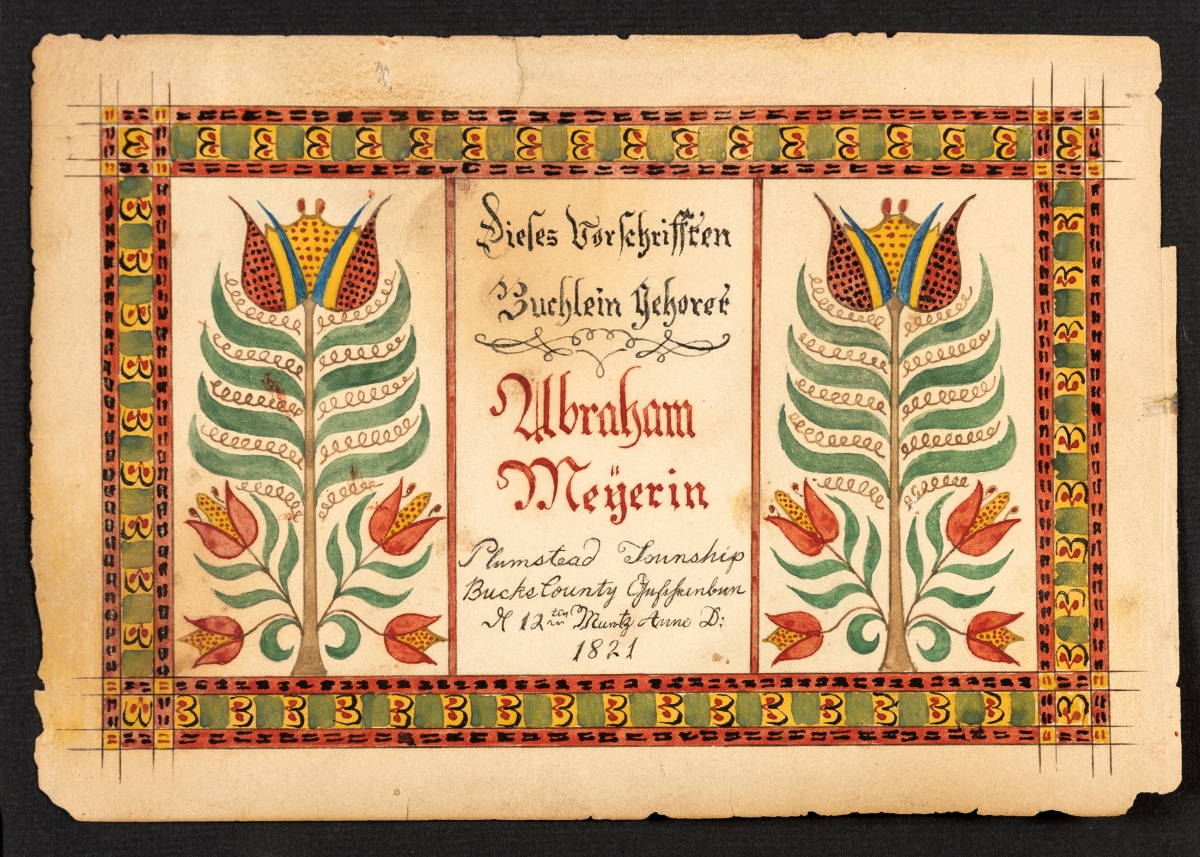 Dieses Vorschrifften
Buchlein Gehoret
Abraham
Meÿerin
Plumstead Township
Bucks County Geschrieben
12ten Mertz Anno D:
1821